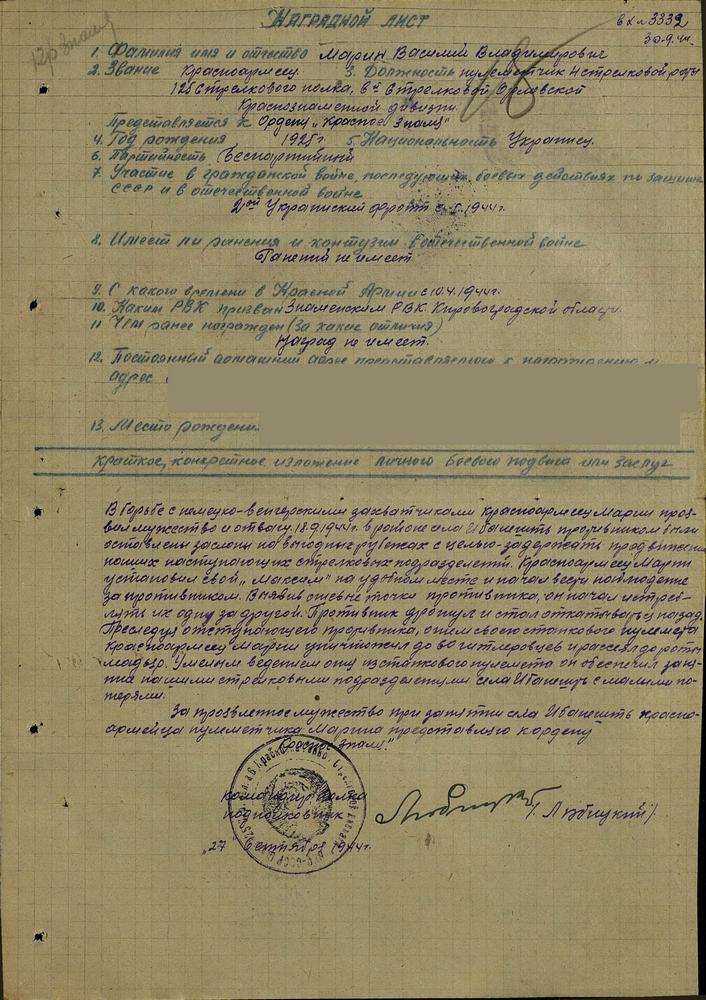 Кр Знамя
вх № 3332
30.9.44.
Наградной лист
1. Фамилия имя и отчество Марин Василий Владимирович
2. Звание Красноармеец. 3. Должность пулеметчик 4 стрелковой роты
125 стрелкового полка, 6й стрелковой Орловской
Краснознаменной дивизии.
Представляется к Ордену „Красное Знамя"
4. Год рождения 1925г. 5. Национальность Украинец.
6. Партийность Беспартийный
7. Участие в гражданской войне, последующих боевых действиях по защите
СССР и в отечественной войне
2ой Украинский фронт с 5.1944г.
8. Имеет ли ранения и контузии в отечественной войне
Ранений не имеет
9. С какого времени в Красной Армии с 10.4.1944г.
10. Каким РВК призван Знаменским РВК Кировоградской области.
11 Чем ранее награжден (за какие отличия)
Наград не имеет.
12. Постоянный домашний адрес представляемого к награждению и
адрес
13. Место рождения
Краткое, конкретное изложение личного боевого подвига или заслуг
В борьбе с немецко-венгерскими захватчиками красноармеец Марин проя-
вил мужество и отвагу. 18.9.1944г. в районе села Ибанешть противником были
оставлены заслоны на выгодных рубежах с целью задержать продвижение
наших наступающих стрелковых подразделений. Красноармеец Марин
установил свой „Максим" на удобном месте и начал вести наблюдение
за противником. Выявив огневые точки противника, он начал истреб-
лять их одну за другой. Противник дрогнул и стал откатываться назад.
Преследуя отступающего противника, огнем своего станкового пулемета
Красноармеец Марин уничтожил до 60 гитлеровцев и рассеял до роты
мадьяр. Умелым ведением огня из станкового пулемета он обеспечил заня-
тие нашими стрелковыми подразделениями села Ибанешть с малыми по-
терями.
За проявленное мужество при занятии села Ибанешть красно-
армейца пулеметчика Марина представляю к ордену
„Красное Знамя"
Командир полка
подполковник
/Любицкий/.
„27" Сентября 1944г.